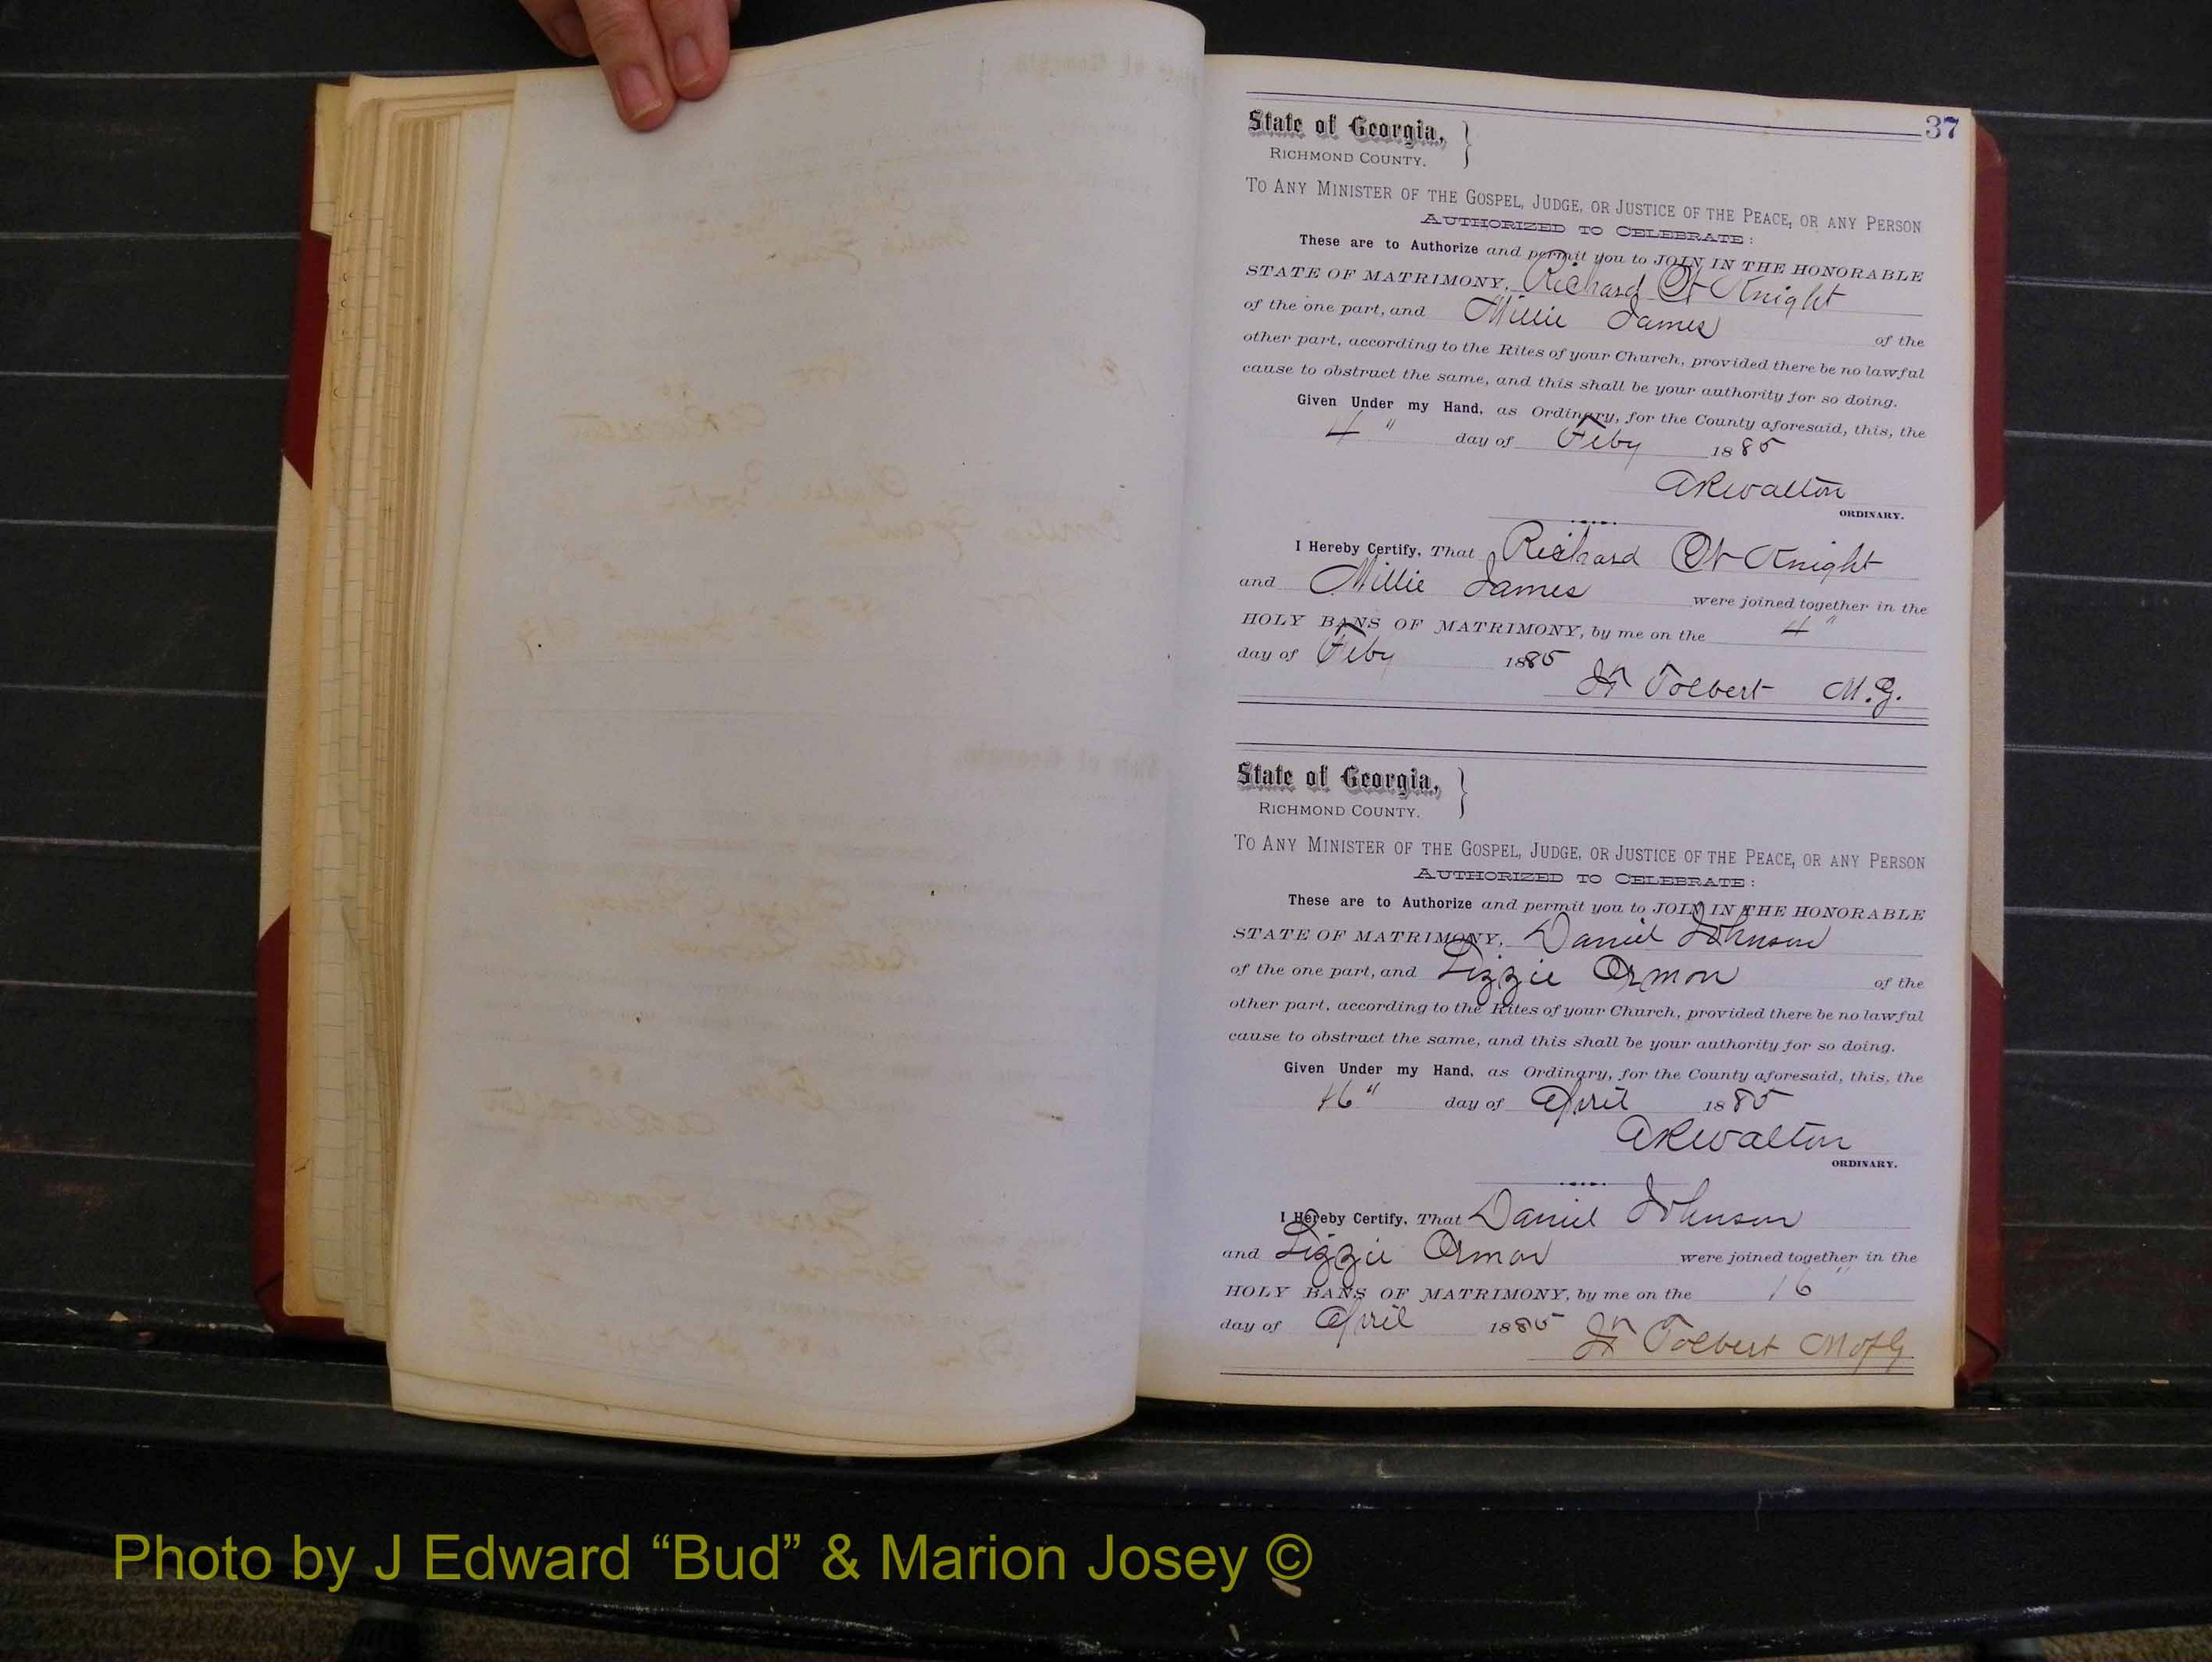 37
State of Georgia,
RICHMOND COUNTY.
TO ANY MINISTER OF THE GOSPEL, JUDGE, OR JUSTICE OF THE PEACE, OR ANY PERSON
AUTHORIZED TO CELEBRATE:
These are to Authorize and permit you to JOIN IN THE HONORABLE
STATE OF MATRIMONY, Richard Knight
of the one part, and Millie James of the
other part, according to the Rites of your Church, provided there be no lawful
cause to obstruct the same, and this shall be your authority for so doing.
Given Under my Hand, as Ordinary, for the County aforesaid, this, the
4" day of Feby 1885
A R Walton
ORDINARY.
I Hereby Certify, That Richard Knight
and Millie James were joined together in the
HOLY BANS OF MATRIMONY, by me on the 4"
day of Feby 1885
Tolbert M.G.
State of Georgia,
RICHMOND COUNTY.
TO ANY MINISTER OF THE GOSPEL, JUDGE, OR JUSTICE OF THE PEACE, OR ANY PERSON
AUTHORIZED TO CELEBRATE:
These are to Authorize and permit you to JOIN IN THE HONORABLE
STATE OF MATRIMONY, Daniel Johnson
of the one part, and Lizzie Ormon of the
other part, according to the Rites of your Church, provided there be no lawful
cause to obstruct the same, and this shall be your authority for so doing.
Given Under my Hand, as Ordinary, for the County aforesaid, this, the
16" day of April 1885
A R Walton
ORDINARY.
I Hereby Certify, That Daniel Johnson
and Lizzie Ormon were joined together in the
HOLY BANS OF MATRIMONY, by me on the 16"
day of April 1885
Tolbert M of G
Photo by J Edward “Bud” & Marion Josey ©